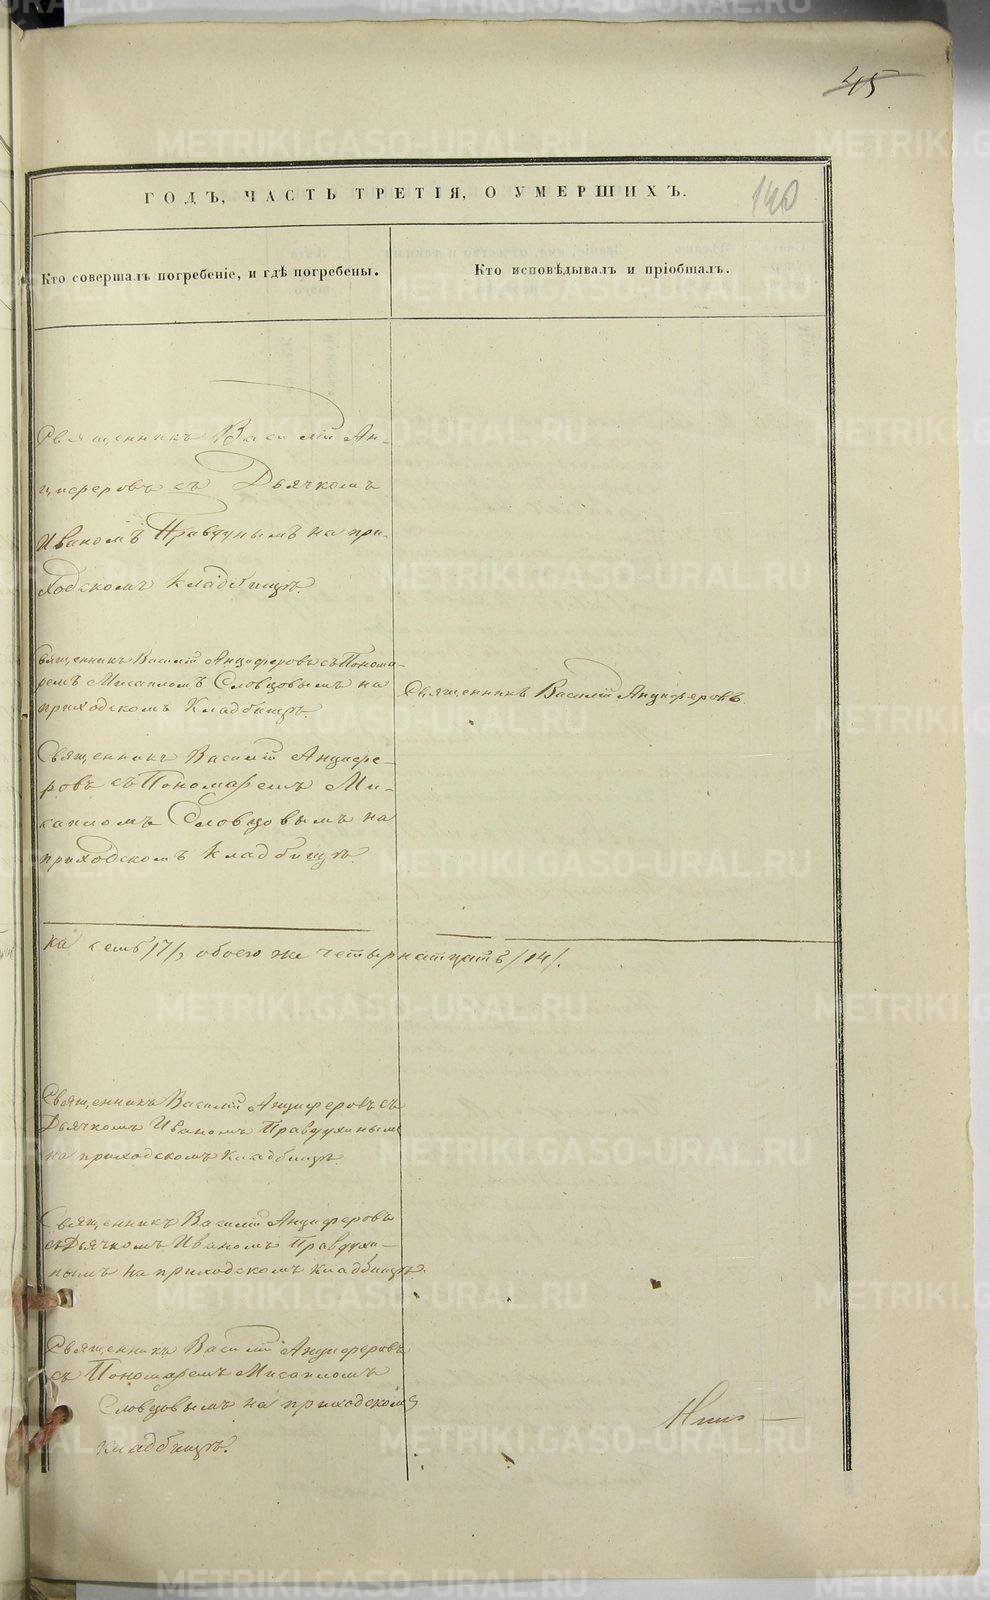 45
ГОДЪ, ЧАСТЬ ТРЕТІЯ, О УМЕРШИХЪ.
140
Кто совершалъ погребеніе, и гдѣ погребены.
Кто исповѣдывалъ и пріобщалъ.
Священникъ Василій Ан-
циферовъ съ Дьячкомъ
Иваномъ Правдинымъ на при-
ходскомъ кладбищѣ.
Священникъ Василій Анциферовъ съ Понома-
ремъ Мисаиломъ Словцовымъ на
приходскомъ Кладбищѣ.
Священникъ Василій Анциферовъ.
Священникъ Василій Анцифе-
ровъ съ Пономаремъ Ми-
саиломъ Словцовымъ на
приходскомъ кладбищѣ.
ка семь /7/, обоего же четырнатцать /14/.
Священникъ Василій Анциферовъ съ
Дьячкомъ Иваномъ Правдухинымъ
на приходскомъ кладбищѣ.
Священникъ Василій Анциферовъ
съ Дьячкомъ Иваномъ Правдухи-
нымъ на приходскомъ кладбищѣ.
Священникъ Василій Анциферовъ
съ Пономаремъ Мисаиломъ
Словцовымъ на приходскомъ
кладбищѣ.
METRIKI.GASO-URAL.RU